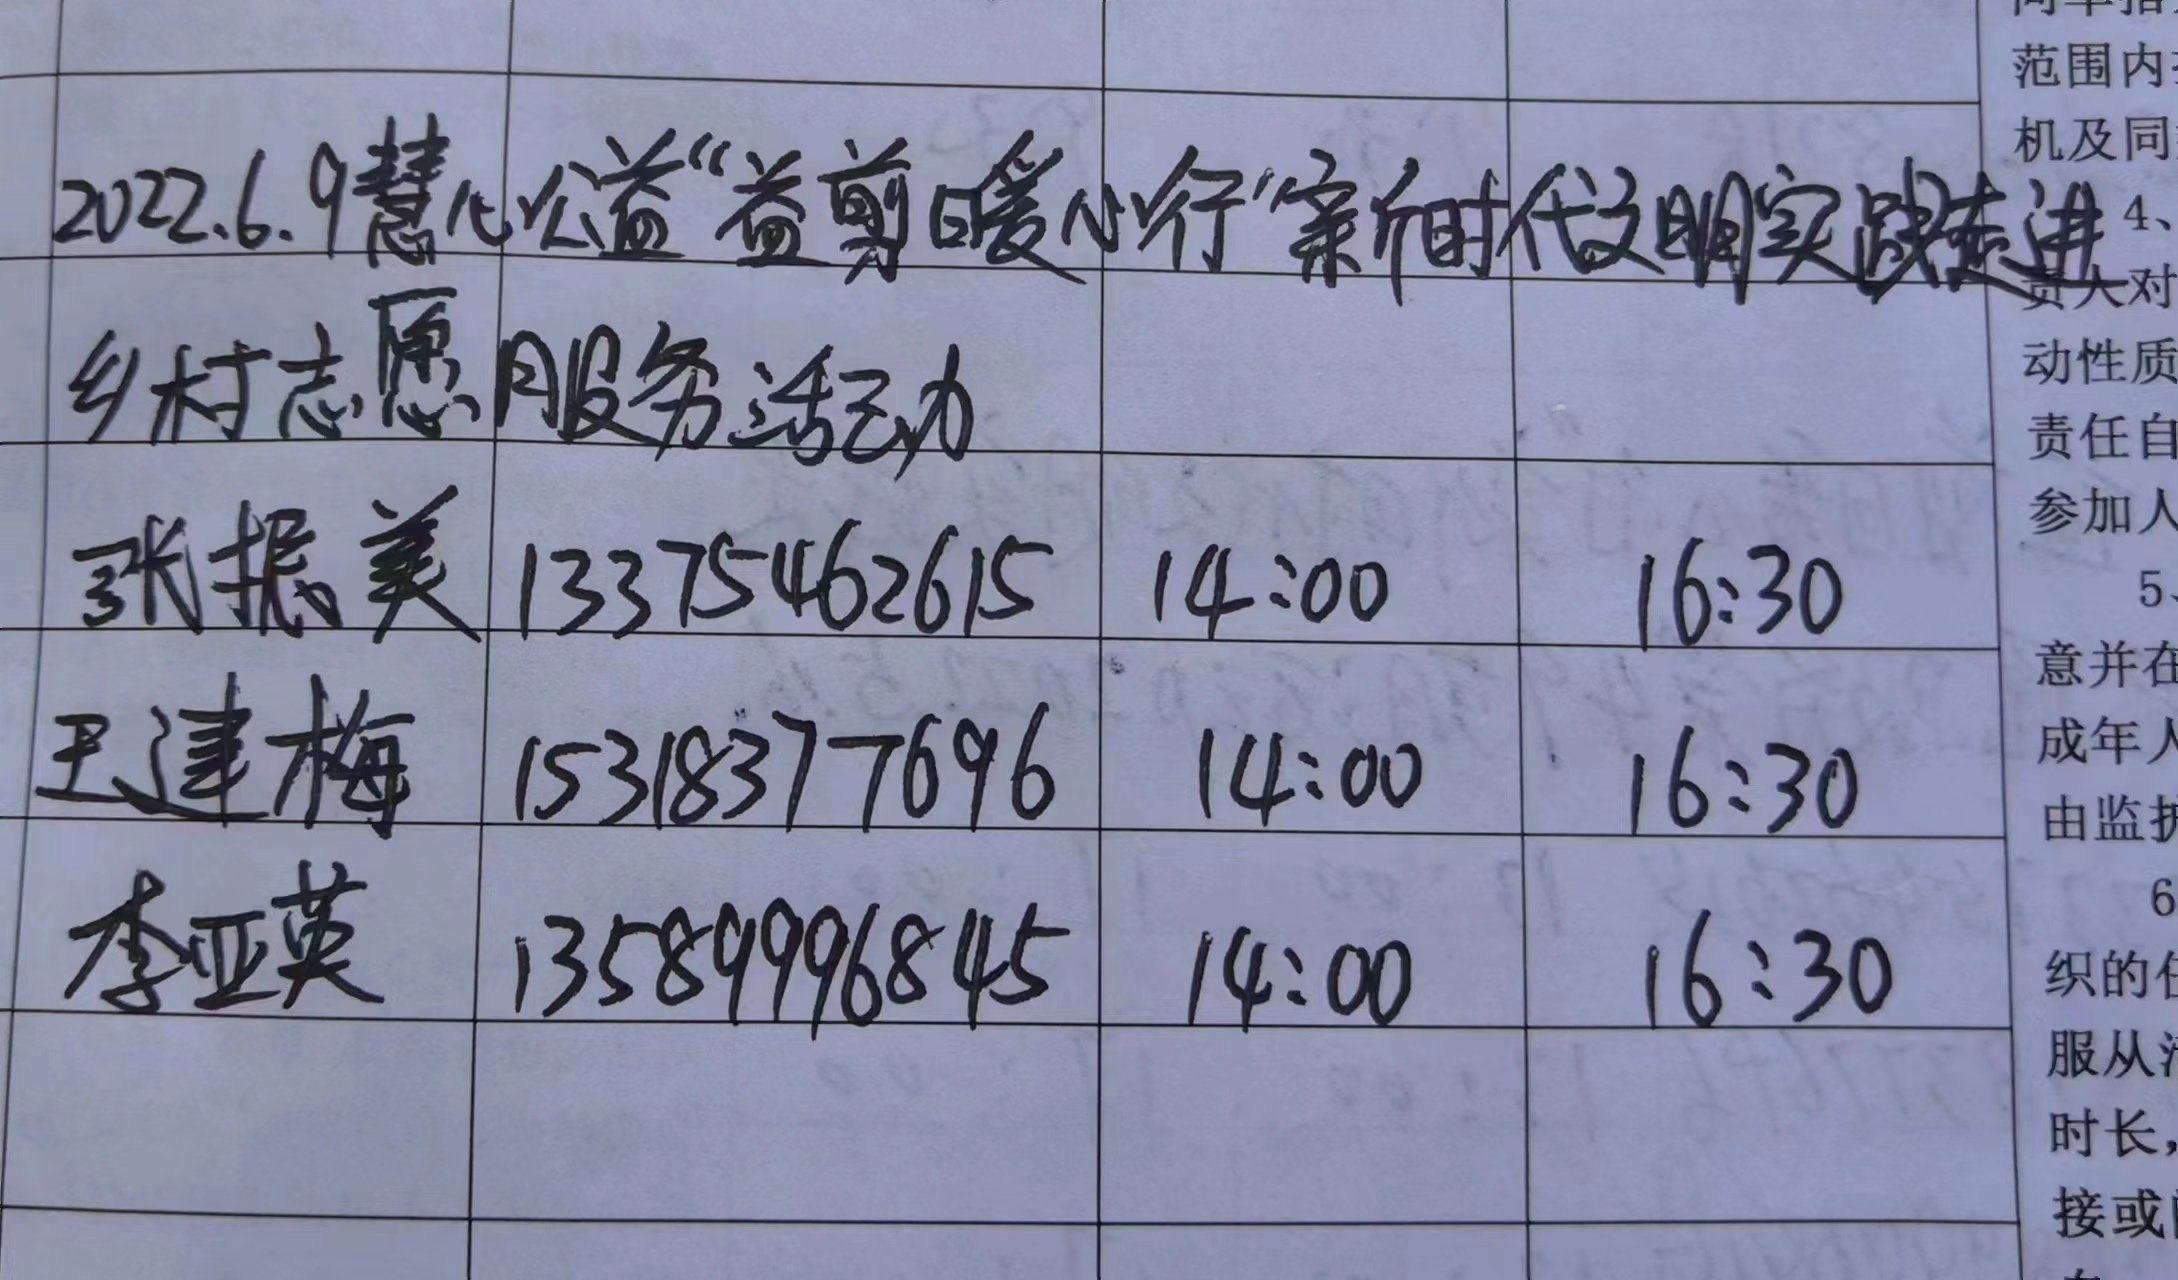 2022.6.9慧心公益“益剪暖心行”新时代文明实践走进
乡村志愿服务活动
张振美 13375462615 14:00 16:30
王建梅 15318377696 14:00 16:30
李亚英 13589996845 14:00 16:30
范围内
机及同
4、
责人对
动性质
责任自
参加人
5、
意并在
成年人
由监护
6
织的任
服从活
时长，
接或间